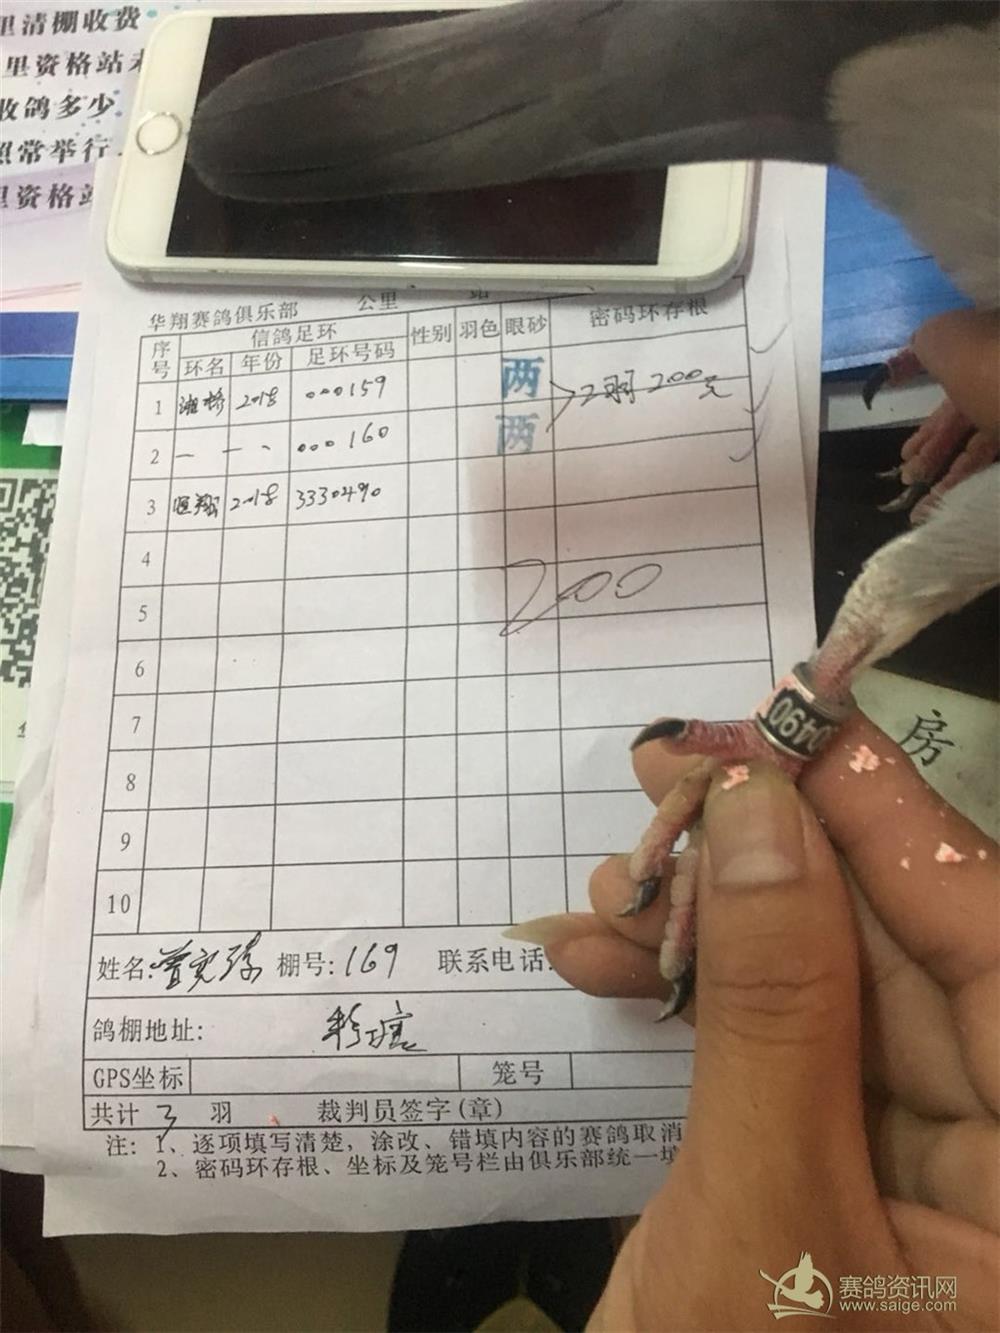 里清棚收费
里资格站未
收鸽多少
照常举行
里资格站
华翔赛鸽俱乐部 公里 站
序号 信鸽足环 性别 羽色 眼砂 密码环存根
环名 年份 足环号码
1 湘桥 2018 000159 两 2羽200元
2 000160 两
3 恒翔 2018 3330490
4
200
5
6
7
8
9
10
姓名: 棚号:169 联系电话:
鸽棚地址:
GPS坐标 笼号
共计 3 羽 裁判员签字(章)
注: 1、逐项填写清楚,涂改、错填内容的赛鸽取消
2、密码环存根、坐标及笼号栏由俱乐部统一填
0490
房
赛鸽资讯网
www.saige.com